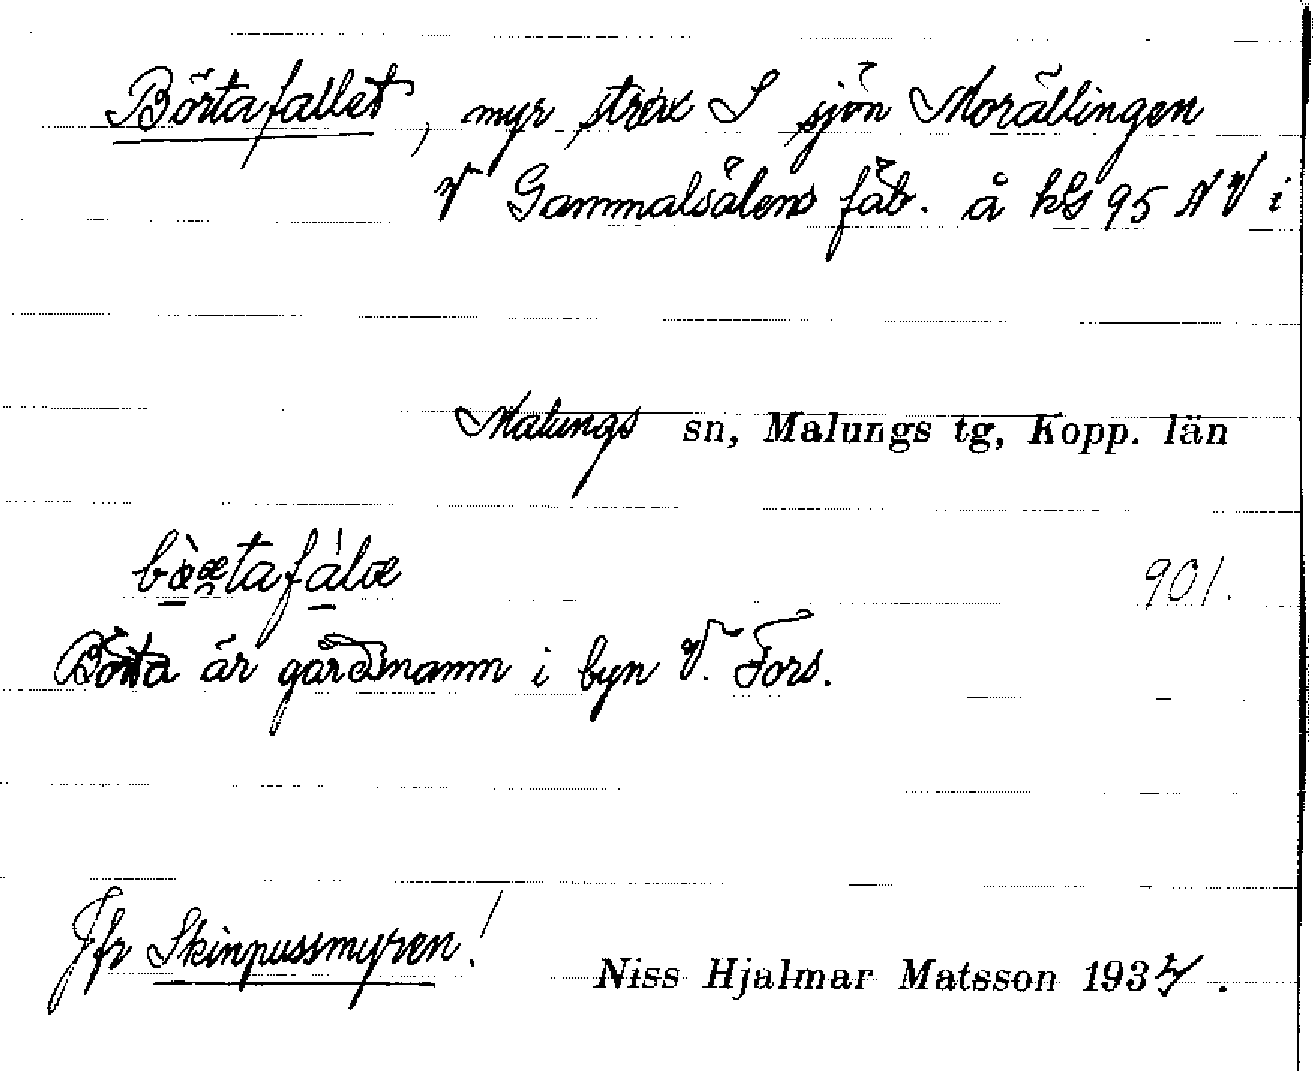 Börtafallet, myr strax S sjön Morällingen
V Gammalsälens fäb. å kbl 95 NV i
Malungs sn, Malungs tg, Kopp. län
901.
Börta är gårdsnamn i byn V. Fors.
Jfr Skinpussmyren!
Niss Hjalmar Matsson 1937.